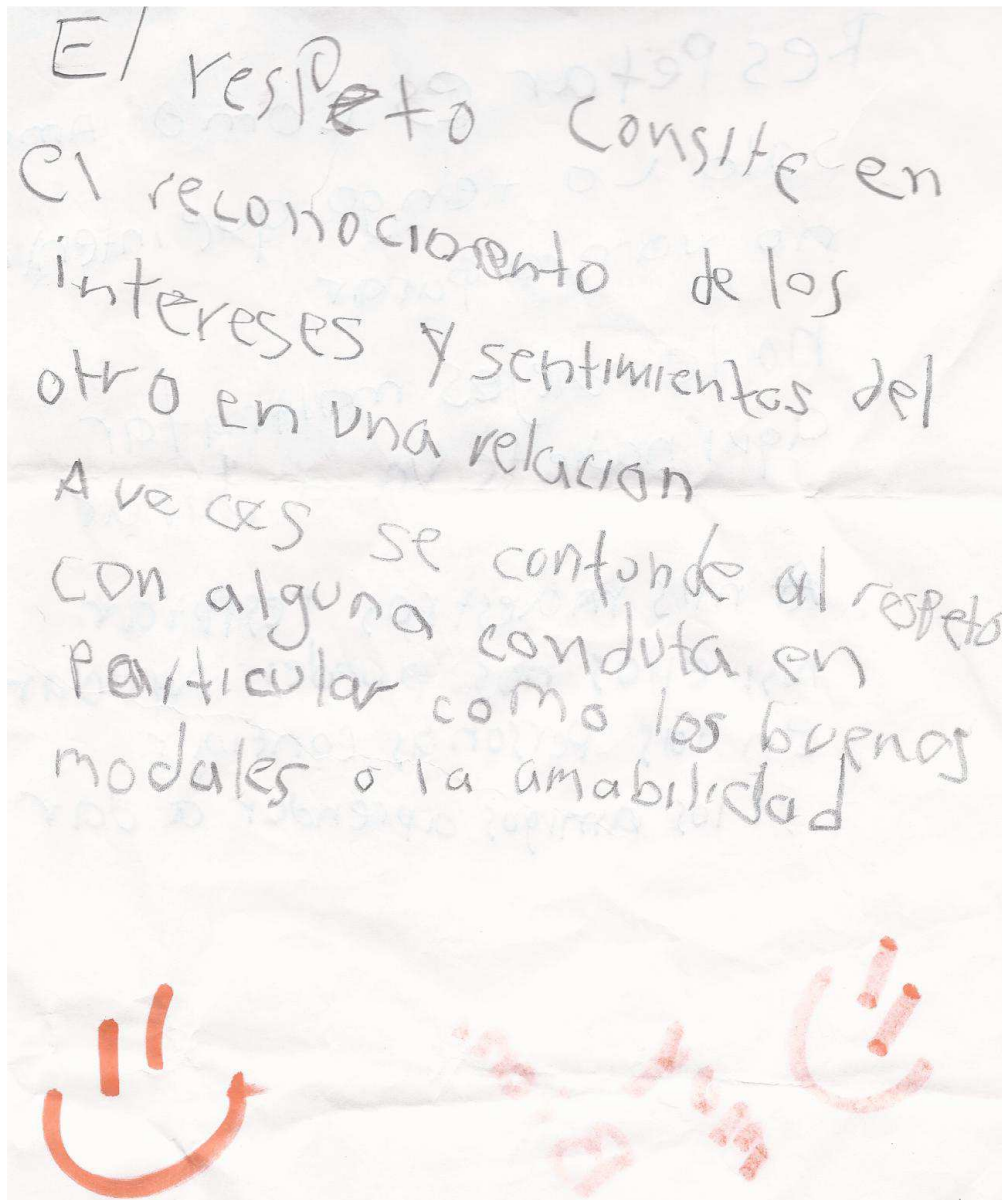 El respeto consite en
el reconocimento de los
intereses y sentimientos del
otro en una relacion
A veces se confunde al respeto
con alguna conduta en
particular como los buenos
modales o la amabilidad